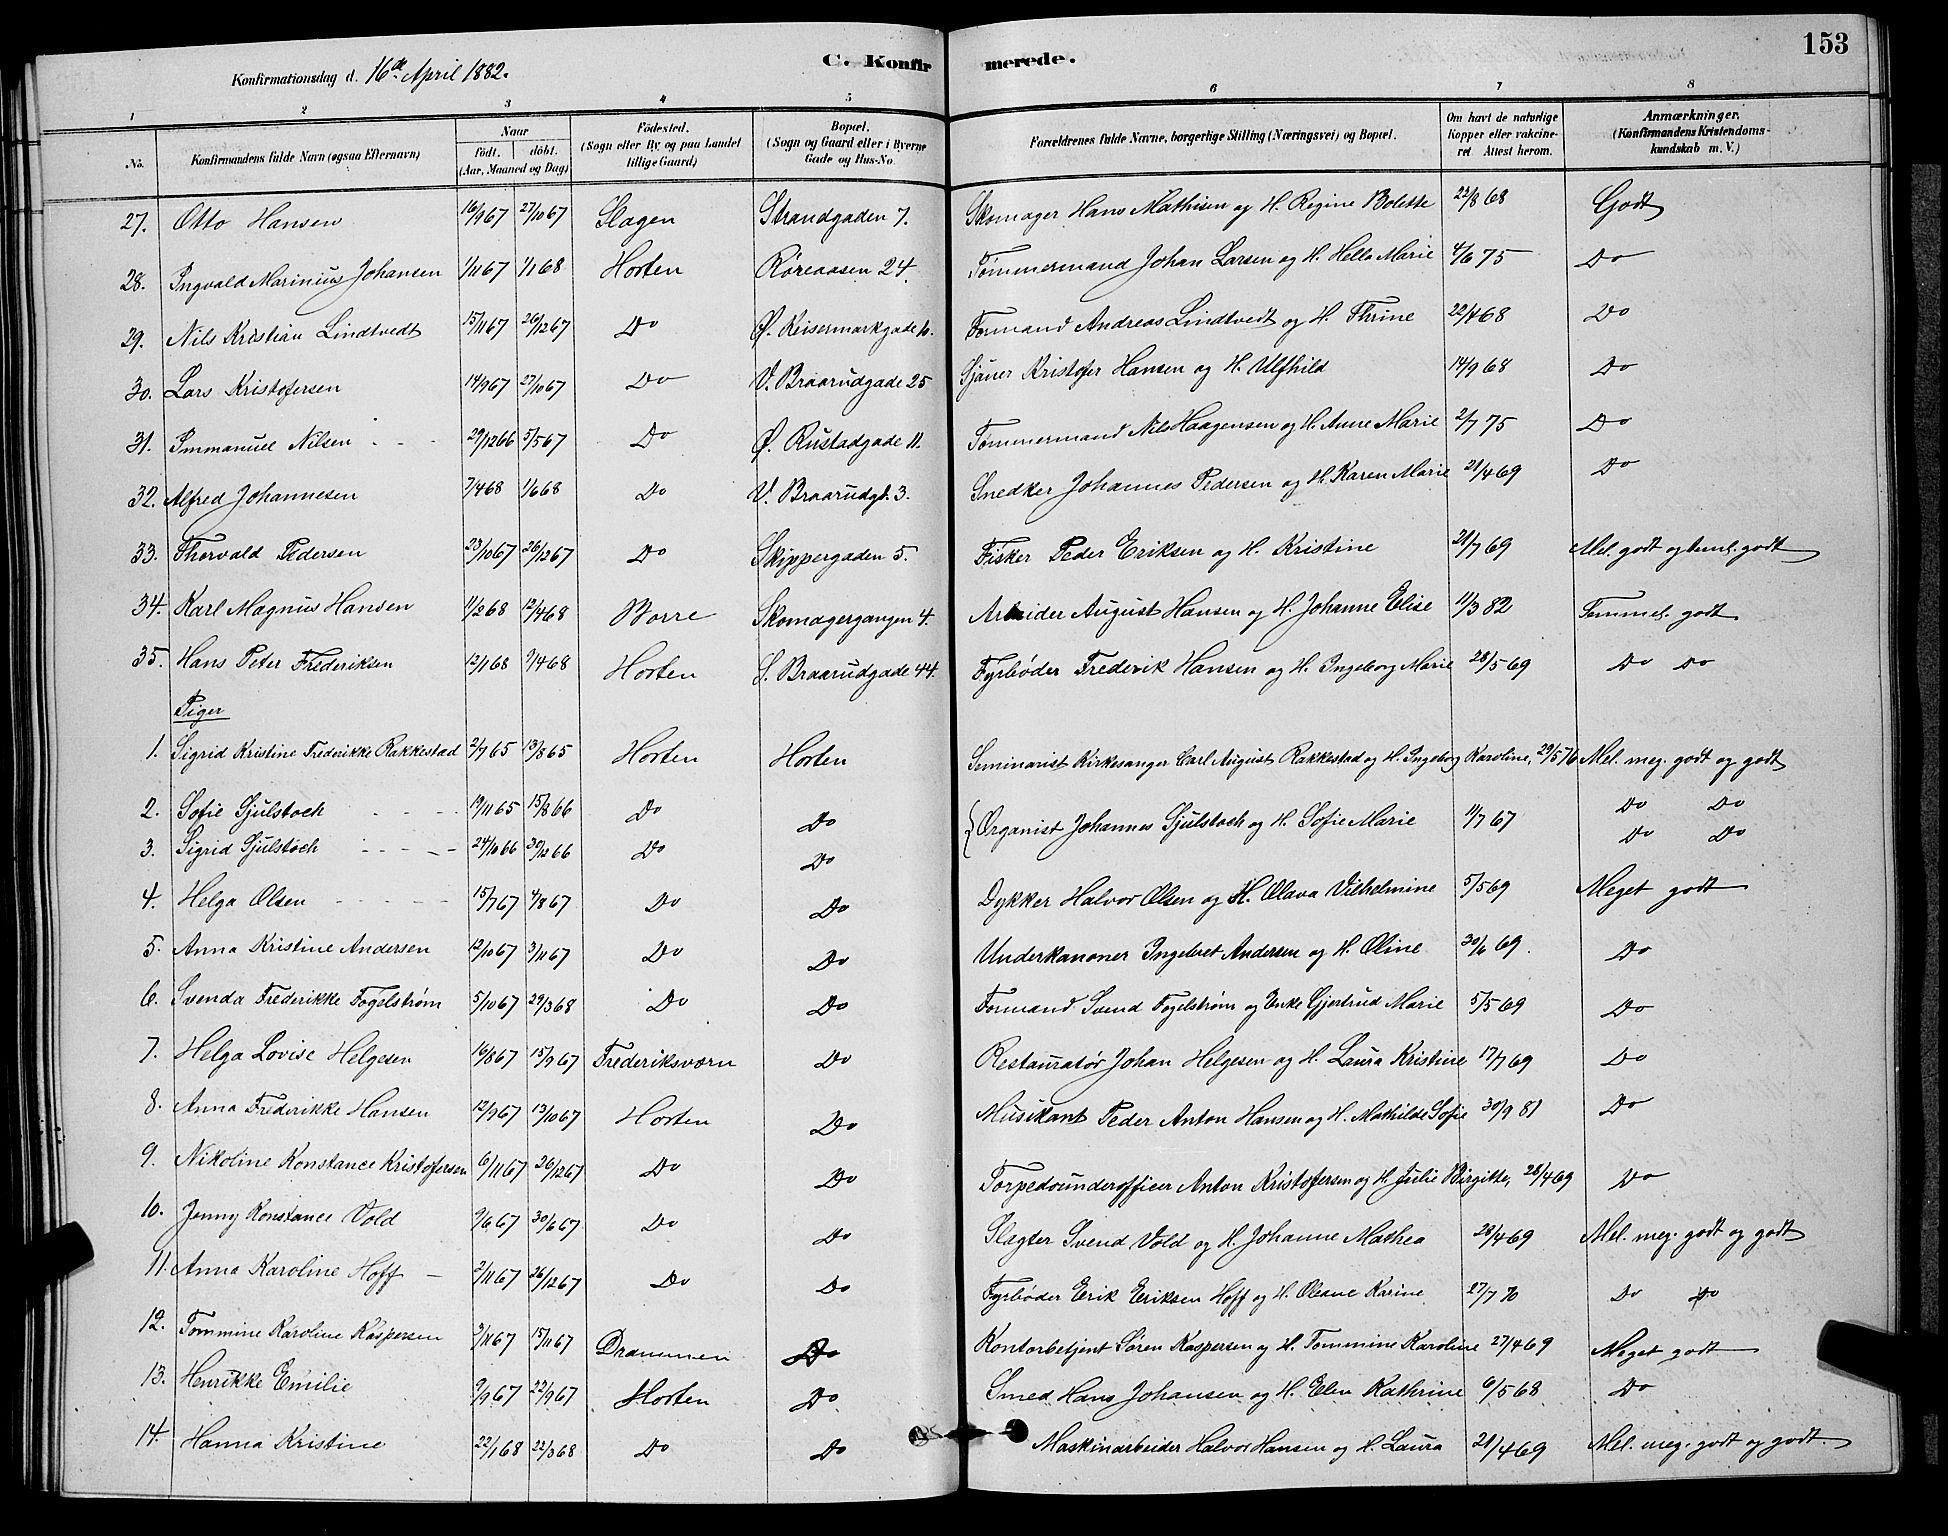 153
Konfirmationsdag d. 16de April 1882.
C. Konfirmerede.
1 2 3 4 5 6 7 8
No. Konfirmandens fulde Navn (ogsaa Efternavn) Naar født. døbt. (Aar, Maaned og Dag) Fødested. (Sogn eller By og paa Landet tillige Gaard) Bopæl. (Sogn og Gaard eller i Byerne Gade og Hus-No. Forældrenes fulde Navne, borgerlige Stilling (Næringsvei) og Bopæl. Om havt de naturlige Kopper eller vakcineret Attest herom. Anmærkninger. (Konfirmandens Kristendomskundskab m. V.)
27. Otto Hansen 16/9 67 27/10 67 Slagen Strandgaden 7. Skomager Hans Mathisen og H. Regine Bolette 22/8 68 Godt
28. Ingvald Marinius Johansen 1/11 67 1/1 68 Horten Røreaasen 24. Tømmermand Johan Larsen og H. Hella Marie 4/6 75 Do
29. Nils Kristian Lindtvedt 15/11 67 26/12 67 Do Ø. Keisermarkgade 10. Formand Andreas Lindtvedt og H. Thrine 22/4 68 Do
30. Lars Kristofersen 14/9 67 27/10 67 Do V. Braarudgade 25 Sjauer Kristofer Hansen og H. Ulfhild 14/9 68 Do
31. Immanuel Nilsen 29/12 66 5/5 67 Do Ø. Rustadgade 11. Tømmermand Nils Haagensen og H. Anne Marie 2/7 75 Do
32. Alfred Johannesen 7/4 68 1/6 68 Do V. Braarudgd. 3. Snedker Johannes Pedersen og H. Karen Marie 21/4 69 Do
33. Thorvald Pedersen 23/10 67 26/12 67 Do Skippergaden 5. Fisker Peder Eriksen og H. Kristine 21/7 69 Mel. godt og teml. godt
34. Karl Magnus Hansen 11/2 68 12/4 68 Borre Skomagergangen 4. Arbeider August Hansen og H. Johanne Elise 11/3 82 Temmel. godt
35. Hans Peter Frederiksen 12/1 68 9/4 68 Horten S. Braarudgade 44. Fyrbøder Frederik Hansen og H. Ingeborg Marie 28/5 69 Do Do
Piger
1. Sigrid Kristine Frederikke Rakkestad 2/7 65 13/8 65 Horten Horten Seminarist Kirkesanger Carl August Rakkestad og H. Ingeborg Karoline, 29/5 76 Mel. meg. godt og godt
2. Sofie Gjulstoch 19/11 65 15/8 66 Do Do { Organist Johannes Gjulstoch og H. Sofie Marie 11/7 67 Do Do
3. Sigrid Gjulstoch 24/10 66 30/12 66 Do Do Do Do
4. Helga Olsen 15/7 67 4/8 67 Do Do Dykker Halvor Olsen og H. Olava Vilhelmine 5/5 69 Meget godt
5. Anna Kristine Andersen 12/10 67 3/11 67 Do Do Underkanoner Ingebret Andersen og H. Oline 30/6 69. Do
6. Svenda Frederikke Fogelstrøm 5/10 67 29/3 68 Do Do Formand Svend Fogelstrøm og Enke Gjertrud Marie 5/5 69 Do
7. Helga Lovise Helgesen 16/8 67 15/9 67 Frederiksværn Do Restauratør Johan Helgesen og H. Laura Kristine 17/7 69 Do
8. Anna Frederikke Hansen 12/9 67 13/10 67 Horten Do Musikant Peder Anton Hansen og H. Mathilde Sofie 30/9 81 Do
9. Nikoline Konstance Kristofersen 6/11 67 26/12 67 Do Do Torpedounderofficer Anton Kristofersen og H. Julie Birgitte, 28/4 69 Do
10. Jenny Konstance Vold 9/6 67 30/6 67 Do Do Slagter Svend Vold og H. Johanne Mathea 28/4 69 Mel. meg. godt og godt
11. Anna Karoline Hoff 2/11 67 26/12 67 Do Do Fyrbøder Erik Eriksen Hoff og H. Oleane Karine 27/7 70 Do Do
12. Tommine Karoline Kaspersen 3/11 67 15/11 67 Drammen Do Kontorbetjent Søren Kaspersen og H. Tommine Karoline 27/4 69 Meget godt
13. Henrikke Emilie 9/9 67 22/9 67 Horten Do Smed Hans Johansen og H. Elen Kathrine 6/5 68 Do
14. Hanna Kristine 22/1 68 22/3 68 Do Do Maskinarbeider Halvor Hansen og H. Laura 28/4 69 Mel. meg. godt og godt.